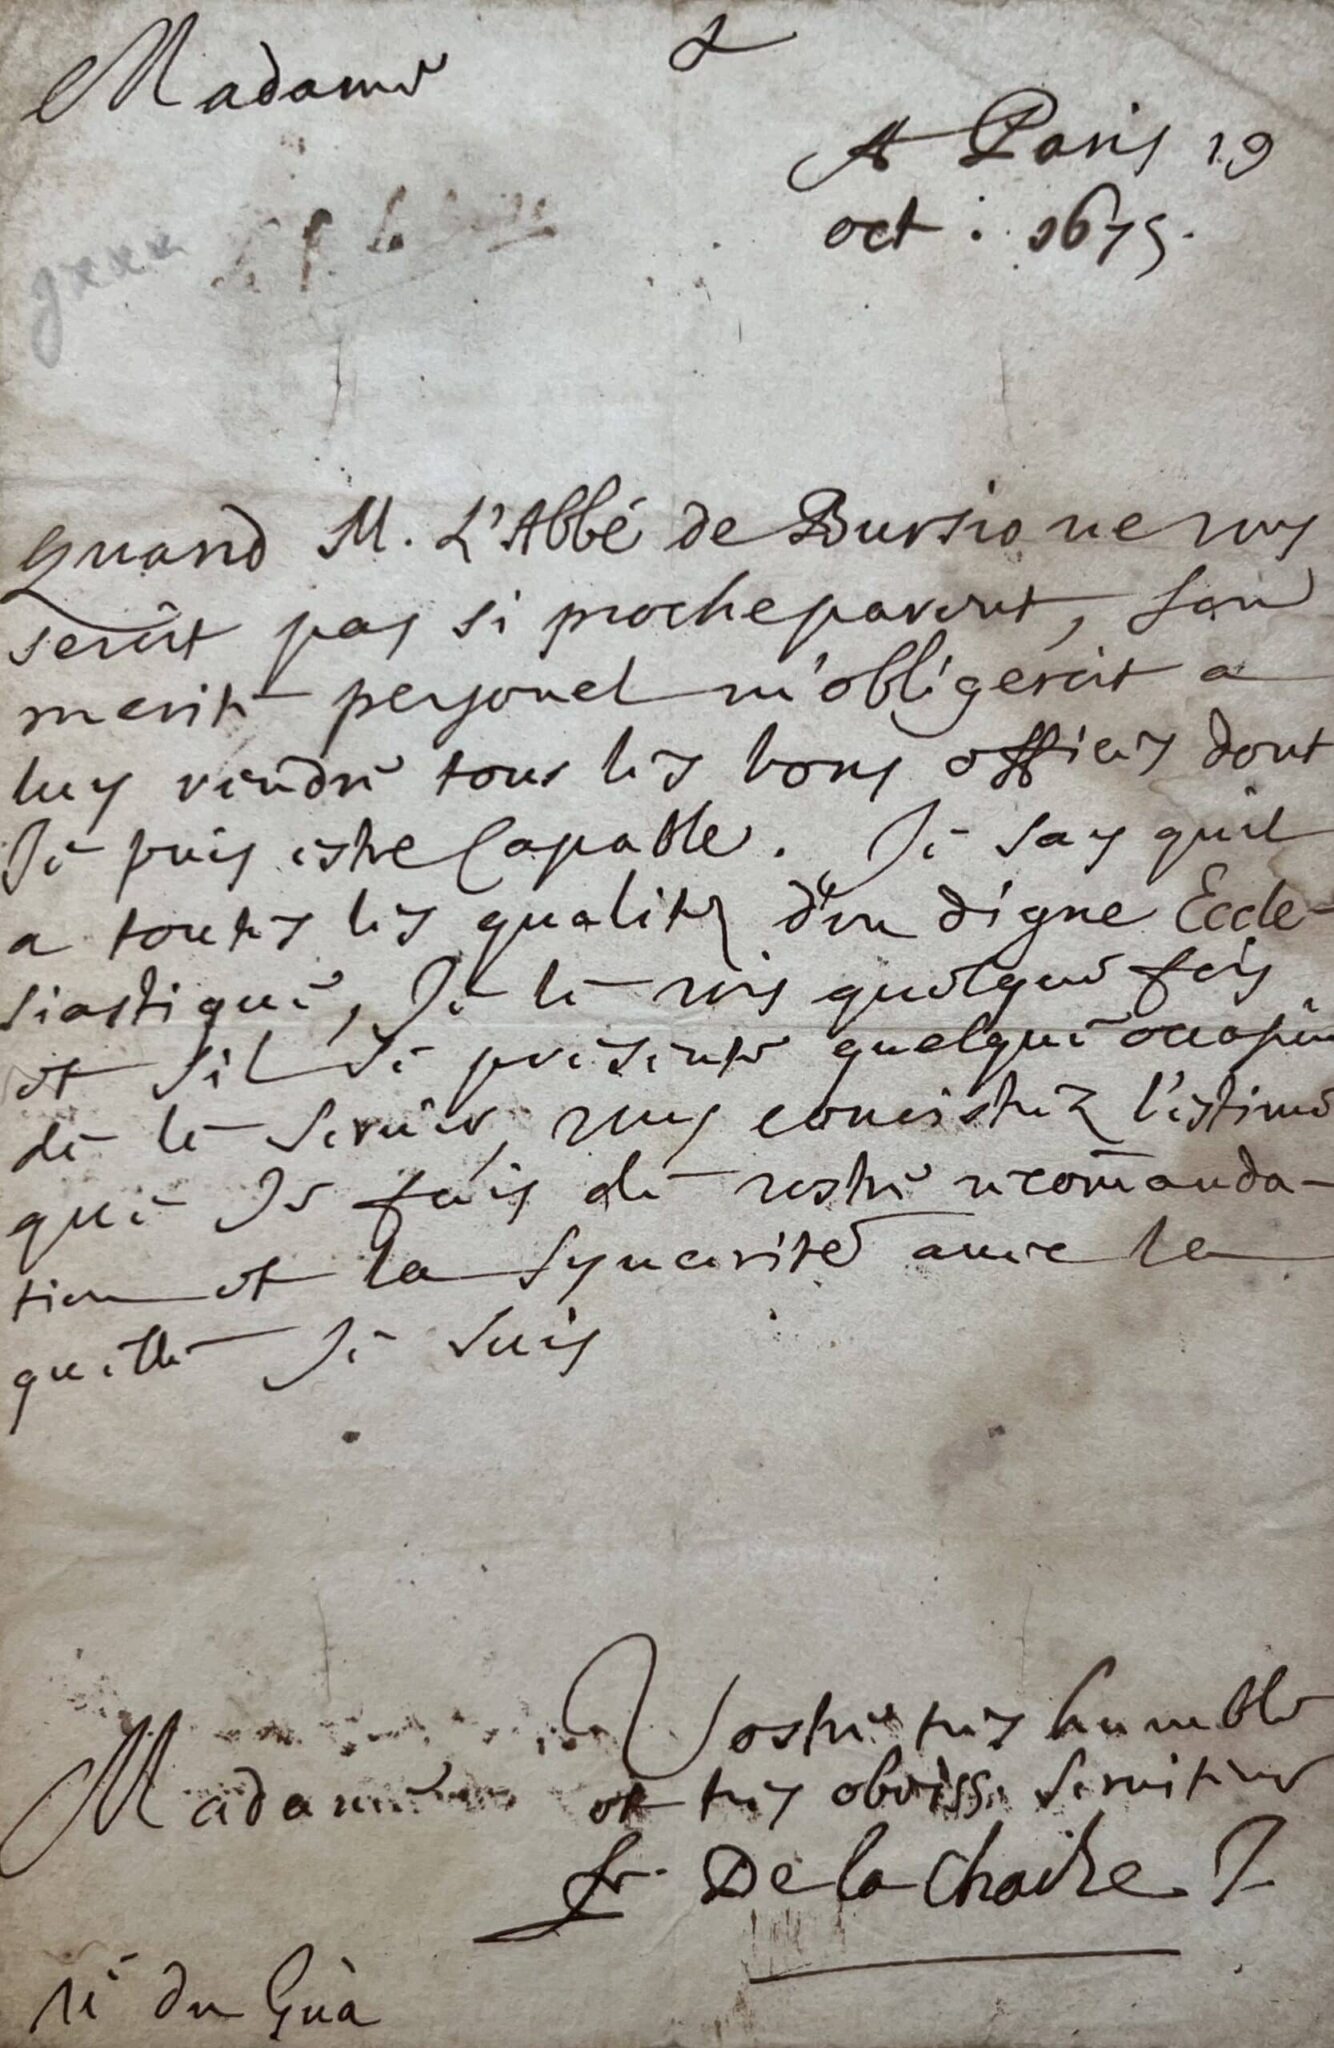 Madame
A Paris 19
oct : 1675.
Quand M. L'Abbé de Bursio ne vous
seroit pas si proche parent, son
merite personel m'obligeroit a
luy rendre tous les bons offices dont
Je puis estre Capable. Je say quil
a toutes les qualitez d'un digne Eccle-
siastique, Je le vois quelque fois
et s'il se presente quelque occasion
de le servir, vous connistrez l'estime
que Je fais de vostre recom̃anda-
tion et la syncerité avec la
quelle Je suis
Vostre tres humble
Madame et tres obeiss. serviteur
fr. De la Chaize J
Me du Guà